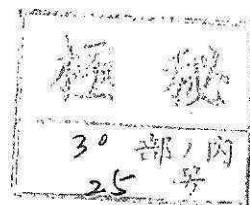 極秘
30 部ノ内
25 号